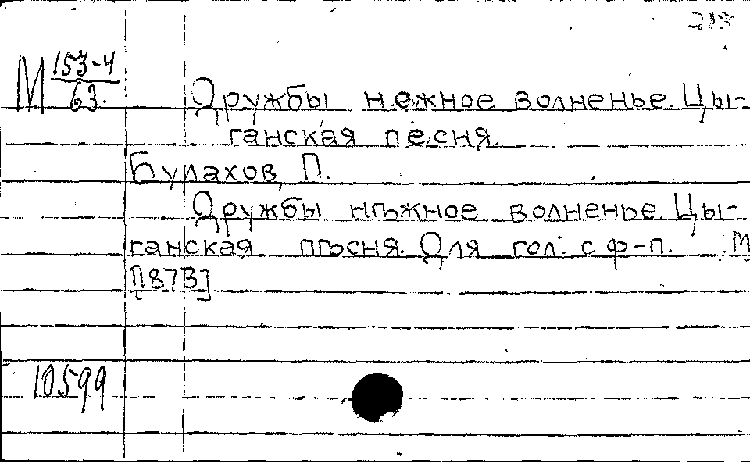 М 153-4
63
Дружбы нежное волненье. Цы-
ганская песня.
Булахов, П.
Дружбы нѣжное волненье. Цы-
ганская пѣсня. Для гол. с ф-п. М
[1873]
10599